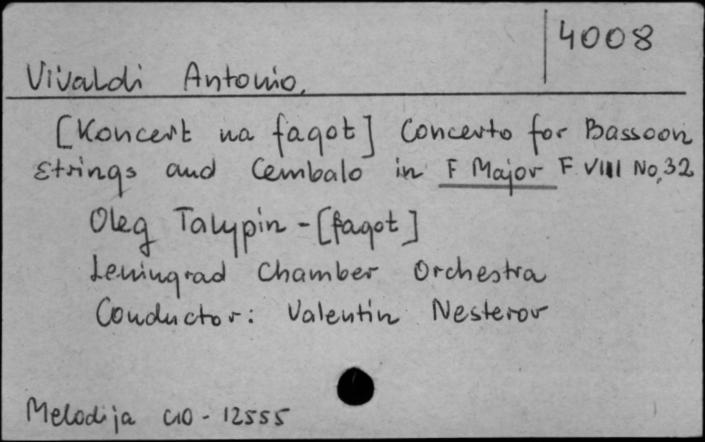 4008
Vivaldi Antonio.
[Koncert na fagot] Concerto for Bassoon
Strings and Cembalo in F Major F VIII No.32
Oleg Talypin - [fagot]
Leningrad Chamber Orchestra
Conductor: Valentin Nesterov
Melodija C10 - 12555